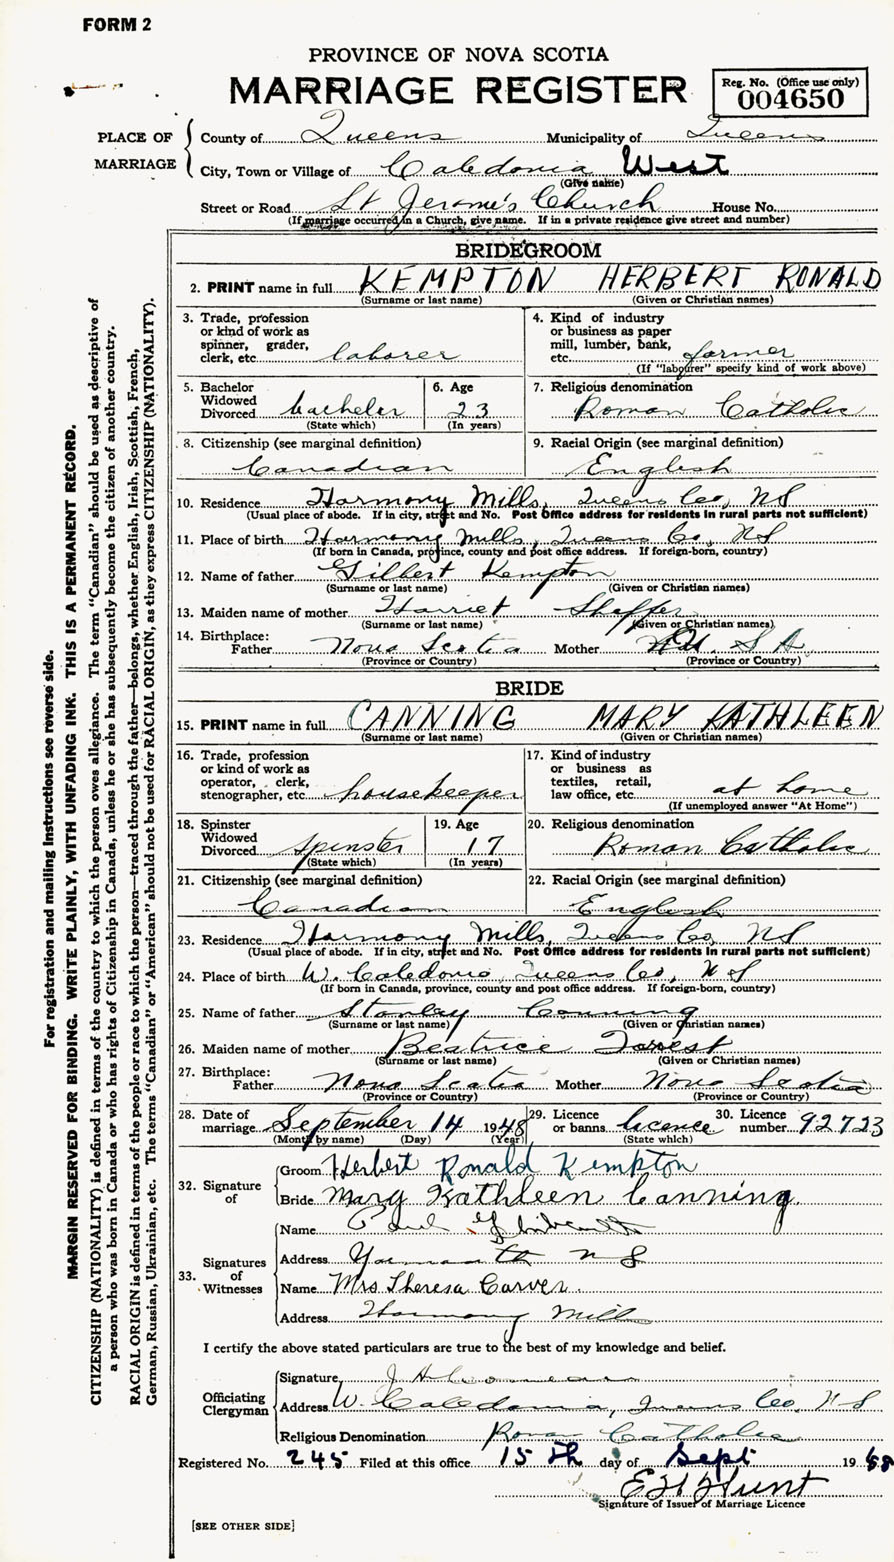 FORM 2
PROVINCE OF NOVA SCOTIA
MARRIAGE REGISTER
Reg. No. (Office use only)
004650
PLACE OF MARRIAGE
County of Queens Municipality of Queens
City, Town or Village of Caledonia West
(Give name)
Street or Road St Jerome's Church House No.
(If marriage occurred in a Church, give name. If in a private residence give street and number)
BRIDEGROOM
2. PRINT name in full KEMPTON HERBERT RONALD
(Surname or last name) (Given or Christian names)
3. Trade, profession or kind of work as spinner, grader, clerk, etc. laborer
4. Kind of industry or business as paper mill, lumber, bank, etc. farmer
(If "labourer" specify kind of work above)
5. Bachelor Widowed Divorced bachelor
(State which)
6. Age 23
(In years)
7. Religious denomination
Roman Catholic
8. Citizenship (see marginal definition)
Canadian
9. Racial Origin (see marginal definition)
English
10. Residence Harmony Mills, Queens Co, NS
(Usual place of abode. If in city, street and No. Post Office address for residents in rural parts not sufficient)
11. Place of birth Harmony Mills, Queens Co, NS
(If born in Canada, province, county and post office address. If foreign-born, country)
12. Name of father Gilbert Kempton
(Surname or last name) (Given or Christian names)
13. Maiden name of mother Harriet Shaffer
(Surname or last name) (Given or Christian names)
14. Birthplace:
Father Nova Scotia Mother U. S A.
(Province or Country) (Province or Country)
BRIDE
15. PRINT name in full CANNING MARY KATHLEEN
(Surname or last name) (Given or Christian names)
16. Trade, profession or kind of work as operator, clerk, stenographer, etc. housekeeper
17. Kind of industry or business as textiles, retail, law office, etc. at home
(If unemployed answer "At Home")
18. Spinster Widowed Divorced spinster
(State which)
19. Age 17
(In years)
20. Religious denomination
Roman Catholic
21. Citizenship (see marginal definition)
Canadian
22. Racial Origin (see marginal definition)
English
23. Residence Harmony Mills, Queens Co, NS
(Usual place of abode. If in city, street and No. Post Office address for residents in rural parts not sufficient)
24. Place of birth W. Caledonia, Queens Co, N S
(If born in Canada, province, county and post office address. If foreign-born, country)
25. Name of father Stanley Canning
(Surname or last name) (Given or Christian names)
26. Maiden name of mother Beatrice
(Surname or last name) (Given or Christian names)
27. Birthplace:
Father Nova Scotia Mother Nova Scotia
(Province or Country) (Province or Country)
28. Date of marriage September 14 1948
(Month by name) (Day) (Year)
29. Licence or banns licence
(State which)
30. Licence number 92723
32. Signature of
Groom Herbert Ronald Kempton
Bride Mary Kathleen Canning
33. Signatures of Witnesses
Name Paul
Address Yarmouth N S
Name Mrs Theresa Carver
Address Harmony Mill
I certify the above stated particulars are true to the best of my knowledge and belief.
Officiating Clergyman
Signature
Address W. Caledonia, Queens Co, N S
Religious Denomination Roman Catholic
Registered No. 245 Filed at this office 15 th day of Sept 1948
E H Hunt
Signature of Issuer of Marriage Licence
[SEE OTHER SIDE]
For registration and mailing instructions see reverse side.
MARGIN RESERVED FOR BINDING. WRITE PLAINLY, WITH UNFADING INK. THIS IS A PERMANENT RECORD.
CITIZENSHIP (NATIONALITY) is defined in terms of the country to which the person owes allegiance. The term "Canadian" should be used as descriptive of
a person who was born in Canada or who has rights of Citizenship in Canada, unless he or she has subsequently become the citizen of another country.
RACIAL ORIGIN is defined in terms of the people or race to which the person—traced through the father—belongs, whether English, Irish, Scottish, French,
German, Russian, Ukrainian, etc. The terms "Canadian" or "American" should not be used for RACIAL ORIGIN, as they express CITIZENSHIP (NATIONALITY).